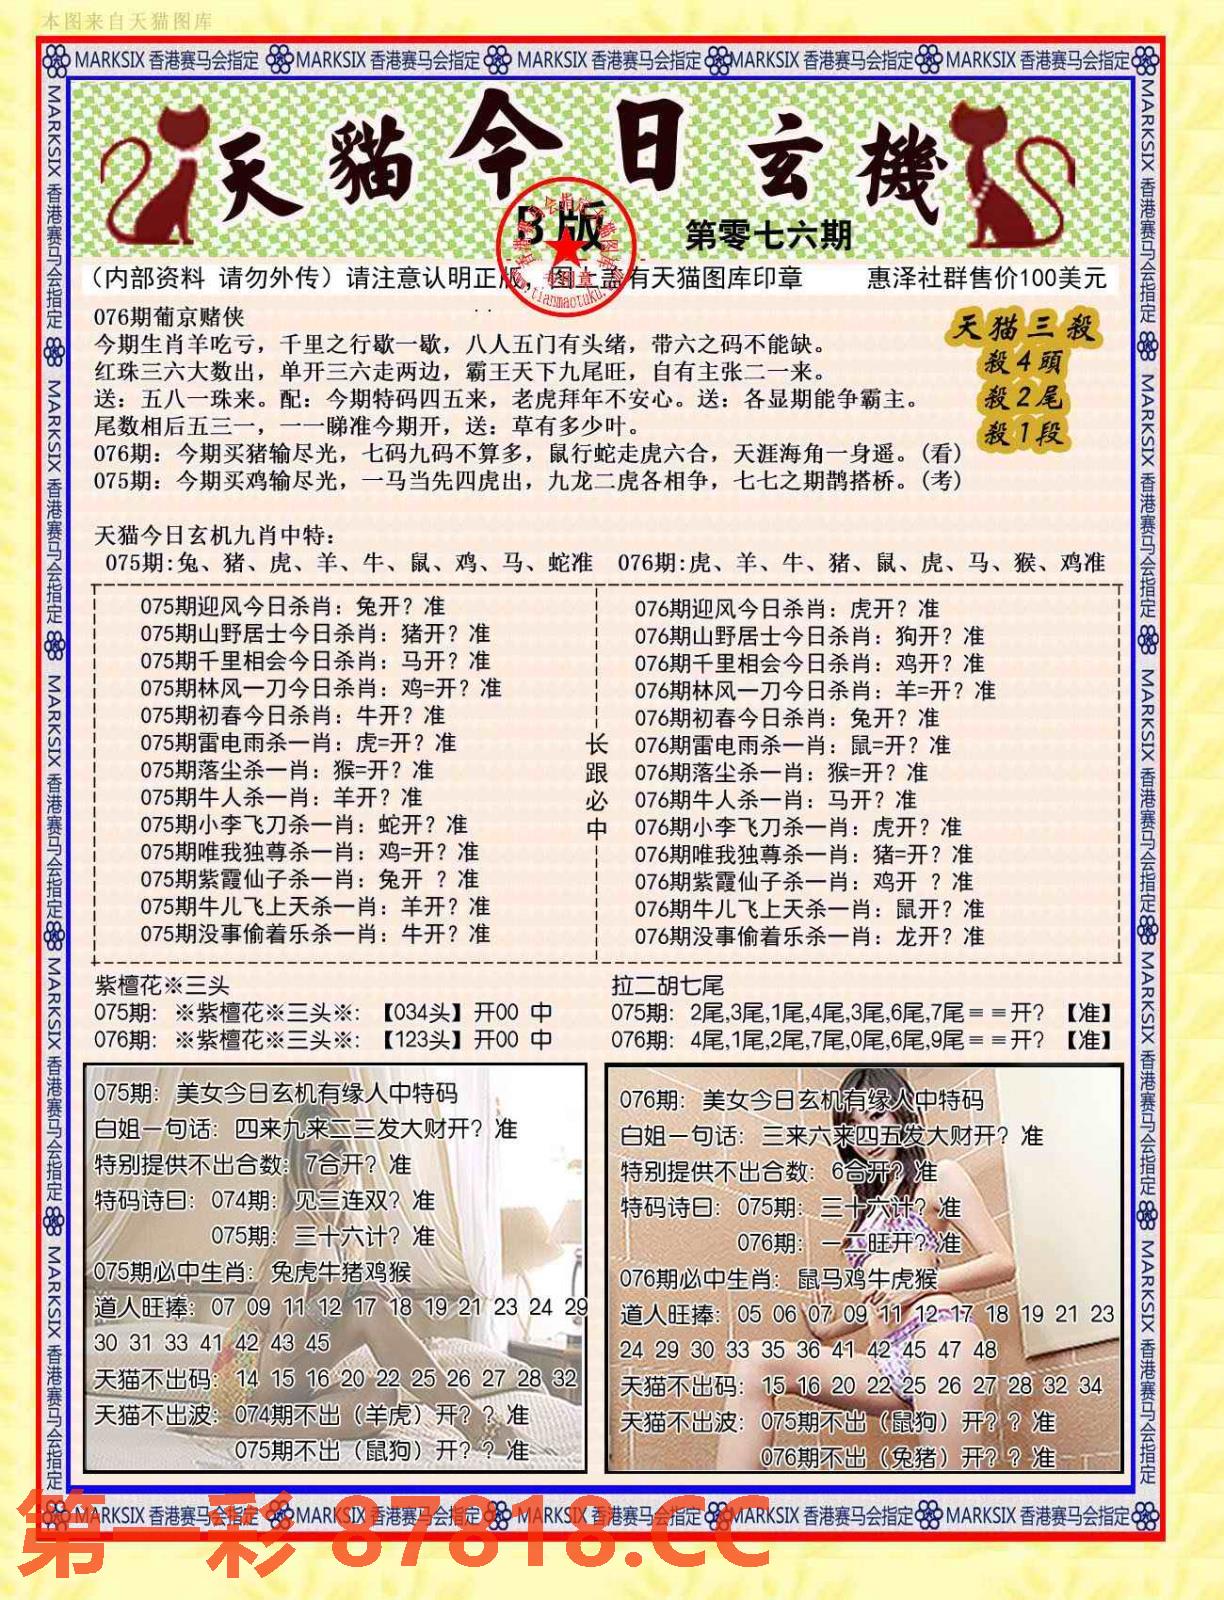 本图来自天猫图库
MARKSIX 香港赛马会指定 MARKSIX 香港赛马会指定 MARKSIX 香港赛马会指定 MARKSIX 香港赛马会指定 MARKSIX 香港赛马会指定
天貓今日玄機
B版
第零七六期
（内部资料 请勿外传）请注意认明正版，图上盖有天猫图库印章 惠泽社群售价100美元
076期葡京赌侠
今期生肖羊吃亏，千里之行歇一歇，八人五门有头绪，带六之码不能缺。
红珠三六大数出，单开三六走两边，霸王天下九尾旺，自有主张二一来。
送：五八一珠来。配：今期特码四五来，老虎拜年不安心。送：各显期能争霸主。
尾数相后五三一，一一睇准今期开，送：草有多少叶。
076期：今期买猪输尽光，七码九码不算多，鼠行蛇走虎六合，天涯海角一身遥。(看)
075期：今期买鸡输尽光，一马当先四虎出，九龙二虎各相争，七七之期鹊搭桥。(考)
天猫三殺
殺4頭
殺2尾
殺1段
天猫今日玄机九肖中特：
075期:兔、猪、虎、羊、牛、鼠、鸡、马、蛇准 076期:虎、羊、牛、猪、鼠、虎、马、猴、鸡准
075期迎风今日杀肖：兔开？准
075期山野居士今日杀肖：猪开？准
075期千里相会今日杀肖：马开？准
075期林风一刀今日杀肖：鸡=开？准
075期初春今日杀肖：牛开？准
075期雷电雨杀一肖：虎=开？准
075期落尘杀一肖：猴=开？准
075期牛人杀一肖：羊开？准
075期小李飞刀杀一肖：蛇开？准
075期唯我独尊杀一肖：鸡=开？准
075期紫霞仙子杀一肖：兔开 ？准
075期牛儿飞上天杀一肖：羊开？准
075期没事偷着乐杀一肖：牛开？准
长跟必中
076期迎风今日杀肖：虎开？准
076期山野居士今日杀肖：狗开？准
076期千里相会今日杀肖：鸡开？准
076期林风一刀今日杀肖：羊=开？准
076期初春今日杀肖：兔开？准
076期雷电雨杀一肖：鼠=开？准
076期落尘杀一肖：猴=开？准
076期牛人杀一肖：马开？准
076期小李飞刀杀一肖：虎开？准
076期唯我独尊杀一肖：猪=开？准
076期紫霞仙子杀一肖：鸡开 ？准
076期牛儿飞上天杀一肖：鼠开？准
076期没事偷着乐杀一肖：龙开？准
紫檀花※三头
075期：※紫檀花※三头※：【034头】开00 中
076期：※紫檀花※三头※：【123头】开00 中
拉二胡七尾
075期：2尾,3尾,1尾,4尾,3尾,6尾,7尾＝＝开？【准】
076期：4尾,1尾,2尾,7尾,0尾,6尾,9尾＝＝开？【准】
075期：美女今日玄机有缘人中特码
白姐一句话：四来九来二三发大财开？准
特别提供不出合数：7合开？准
特码诗曰：074期：见三连双？准
075期：三十六计？准
075期必中生肖：兔虎牛猪鸡猴
道人旺捧：07 09 11 12 17 18 19 21 23 24 29
30 31 33 41 42 43 45
天猫不出码：14 15 16 20 22 25 26 27 28 32
天猫不出波：074期不出（羊虎）开？？准
075期不出（鼠狗）开？？准
076期：美女今日玄机有缘人中特码
白姐一句话：三来六来四五发大财开？准
特别提供不出合数：6合开？准
特码诗曰：075期：三十六计？准
076期：一二旺开？准
076期必中生肖：鼠马鸡牛虎猴
道人旺捧：05 06 07 09 11 12 17 18 19 21 23
24 29 30 33 35 36 41 42 45 47 48
天猫不出码：15 16 20 22 25 26 27 28 32 34
天猫不出波：075期不出（鼠狗）开？？准
076期不出（兔猪）开？？准
MARKSIX 香港赛马会指定 MARKSIX 香港赛马会指定 MARKSIX 香港赛马会指定 MARKSIX 香港赛马会指定 MARKSIX 香港赛马会指定
第一彩 87818.CC
MARKSIX 香港赛马会指定 MARKSIX 香港赛马会指定 MARKSIX 香港赛马会指定 MARKSIX 香港赛马会指定 MARKSIX 香港赛马会指定
MARKSIX 香港赛马会指定 MARKSIX 香港赛马会指定 MARKSIX 香港赛马会指定 MARKSIX 香港赛马会指定 MARKSIX 香港赛马会指定